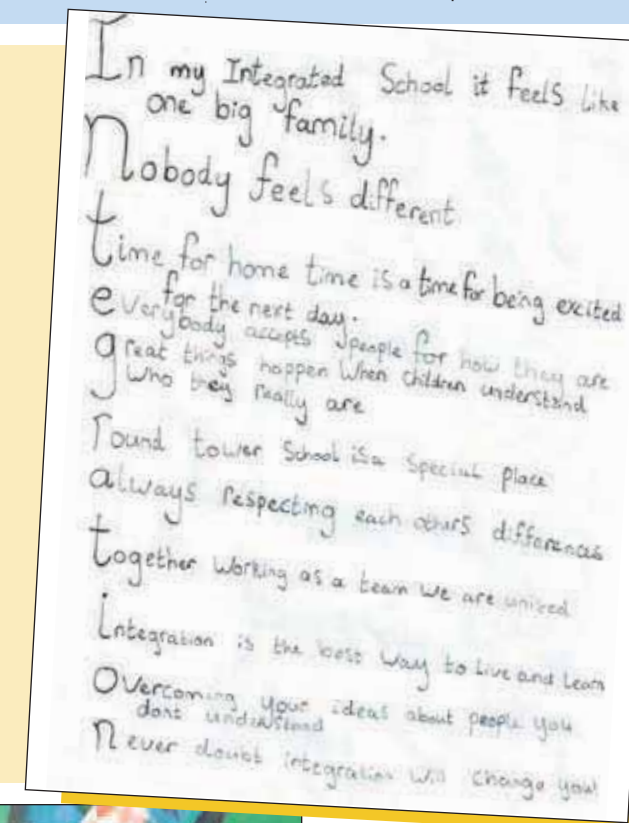 In my Integrated School it feels like
one big family.
Nobody feels different
time for home time is a time for being excited
for the next day.
everybody accepts people for how they are
great things happen When children understand
who they really are
round tower School is a special place
always respecting each others differences
together working as a team we are united
integration is the best way to live and learn
Overcoming your ideas about people you
dont understand
never doubt integration will change you!